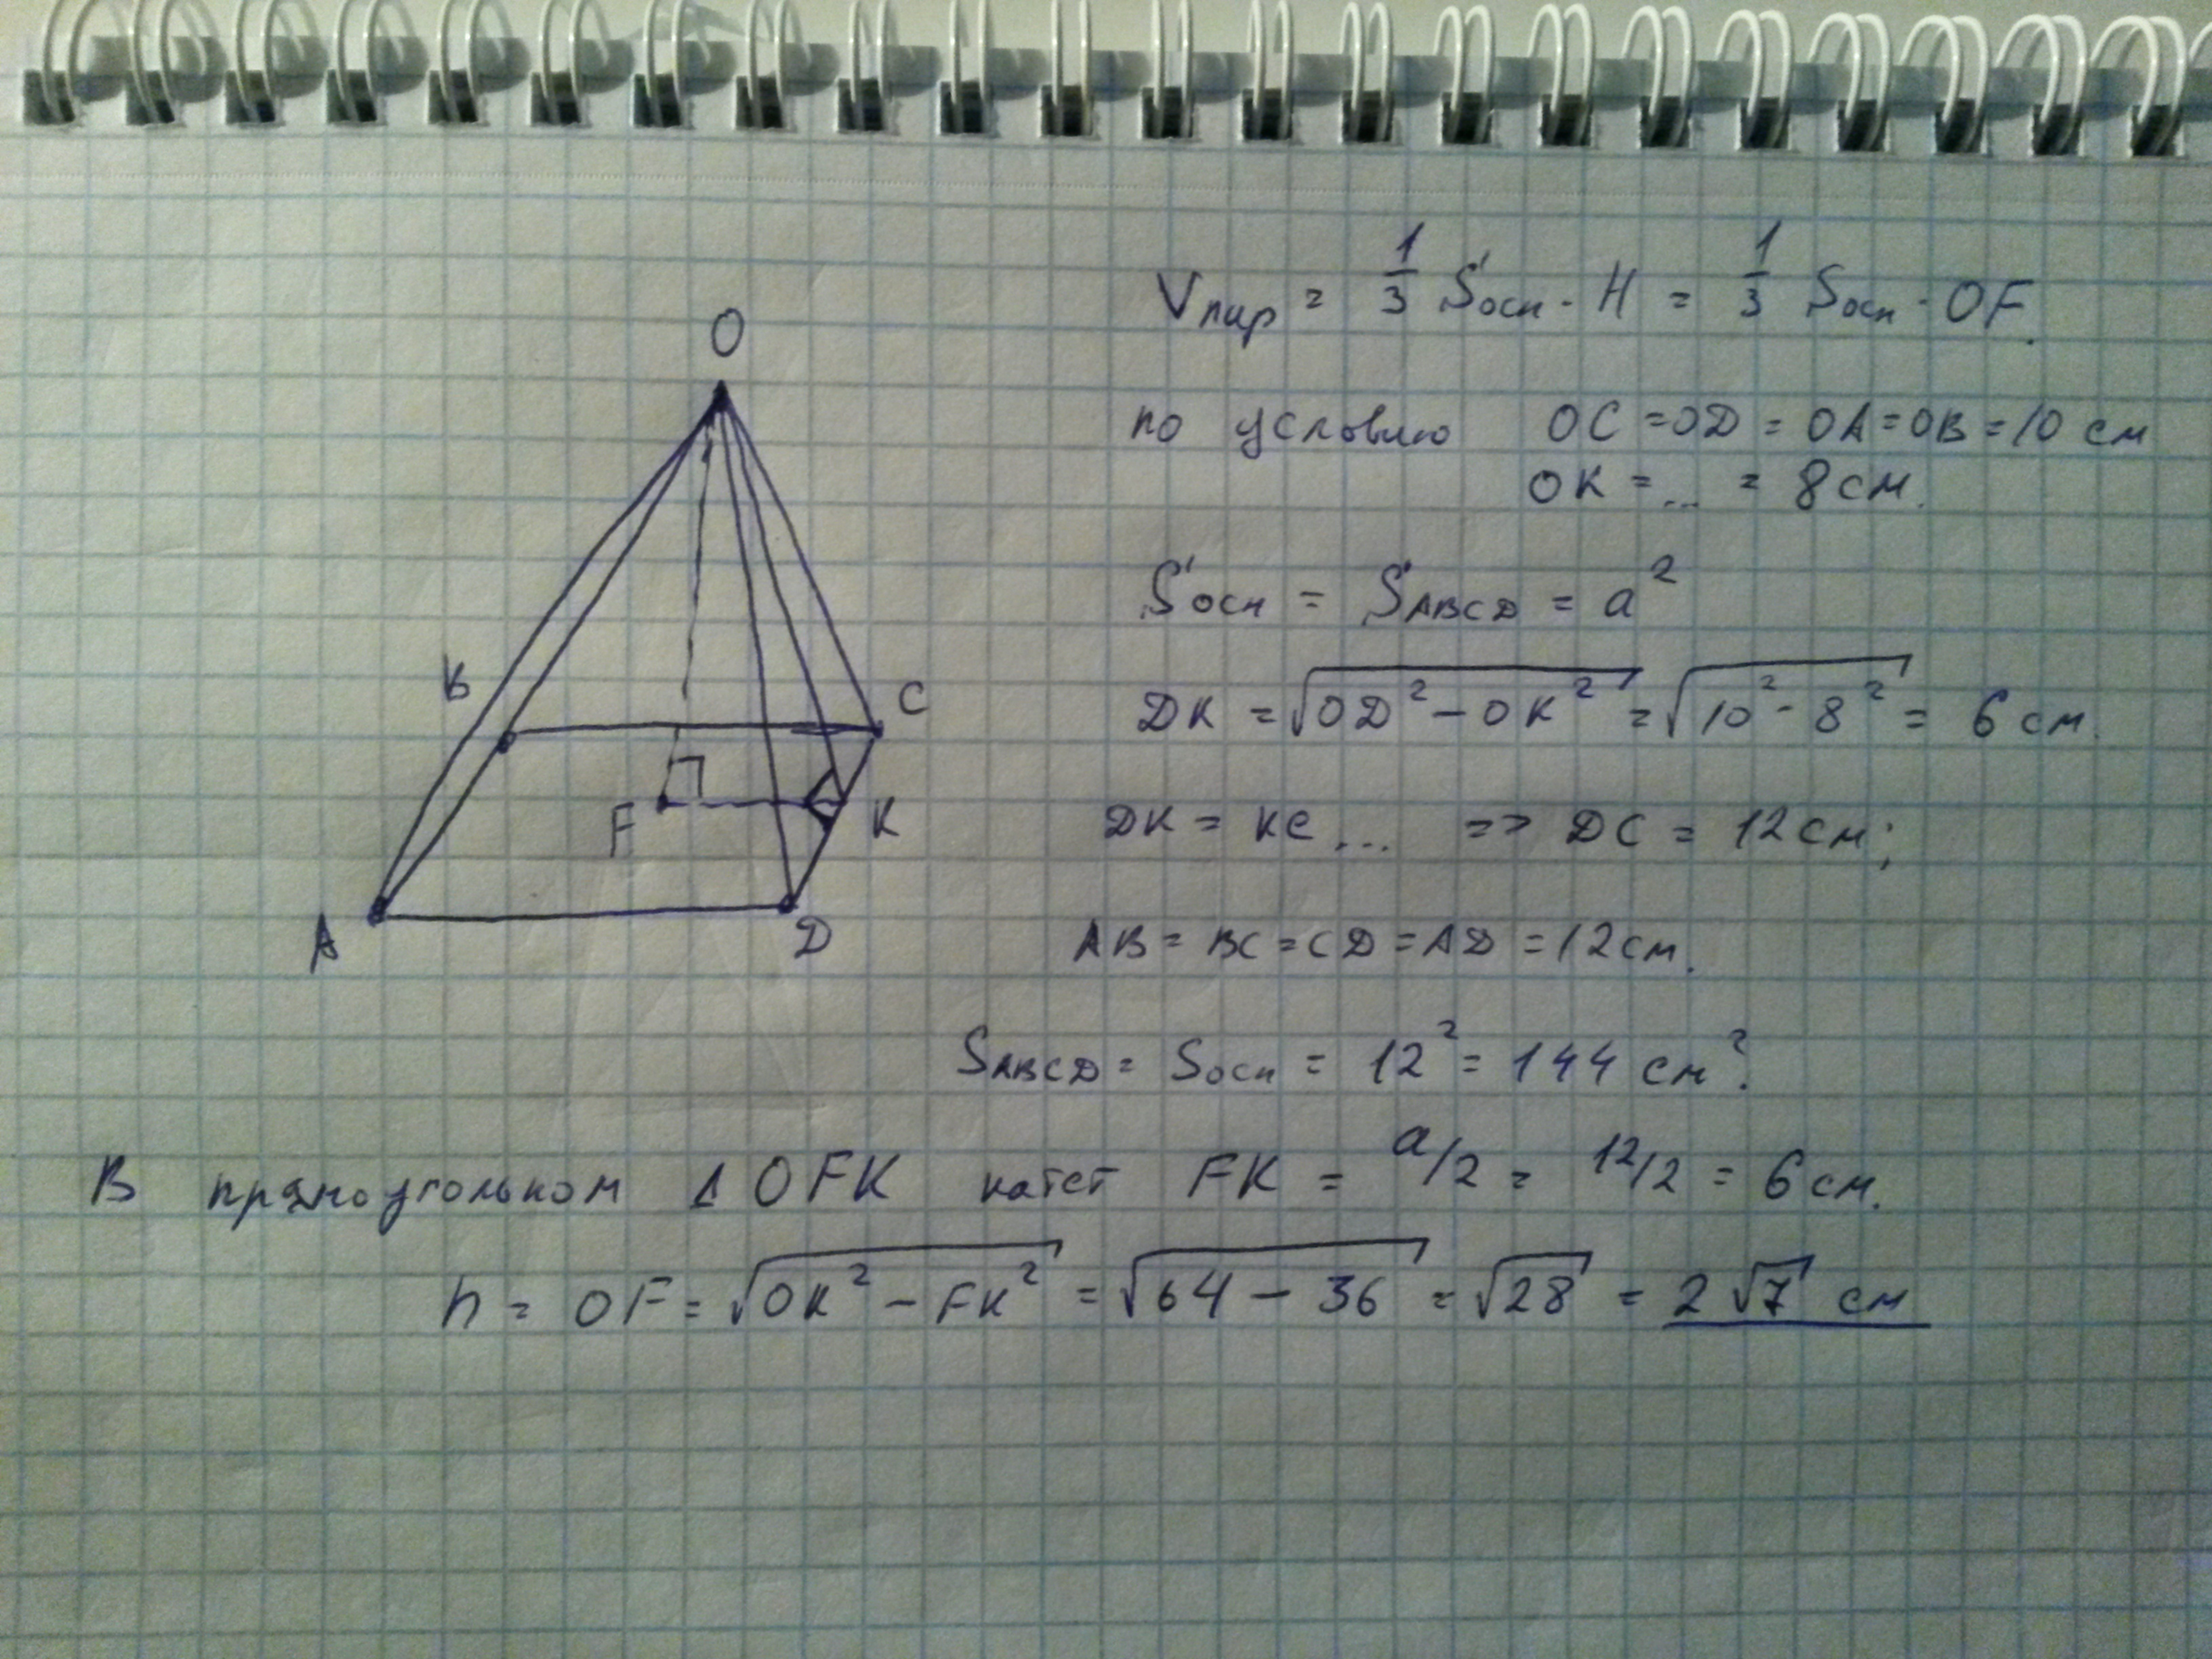 O
B
C
F
K
A
D
Vпир = 1/3 Sосн · H = 1/3 Sосн · OF.
по условию OC = OD = OA = OB = 10 см
OK = ... = 8 см.
Sосн = SABCD = a²
DK = √(OD² − OK²) = √(10² − 8²) = 6 см.
DK = KC ... => DC = 12 см;
AB = BC = CD = AD = 12 см.
SABCD = Sосн = 12² = 144 см².
В прямоугольном Δ OFK катет FK = a/2 = 12/2 = 6 см.
h = OF = √(OK² − FK²) = √(64 − 36) = √28 = 2√7 см